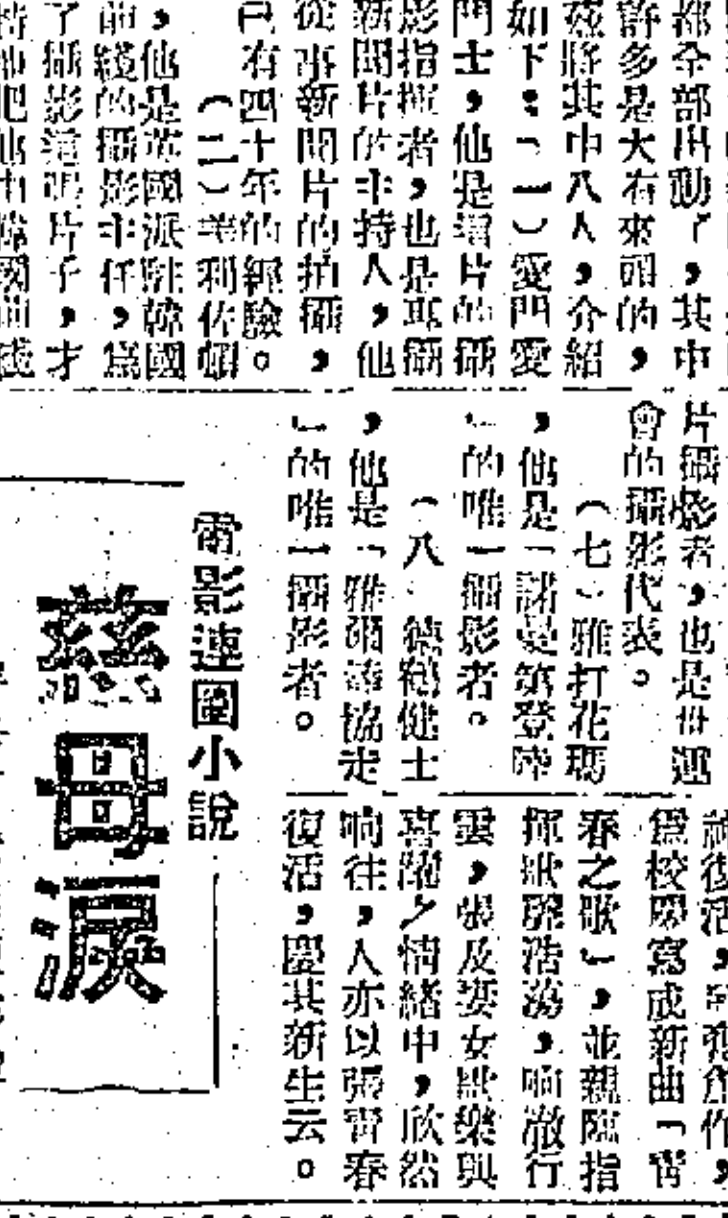 都全部出動了，其中
許多是大有來頭的，
茲將其中八人，介紹
如下：「一）愛門愛
門士，他是增片的攝
影指揮者，也是耶攝
新聞片的主持人，他
從事新聞片的拍攝，
已有四十年的經驗。
（二）利佐頓
，他是英國派駐韓國
前綫的攝影主任，爲
了攝影這片子，才
片攝影者，也是世運
會的攝影代表。
（七）雅打花瑪
，他是「諾曼第登陸
」的唯一攝影者。
（八）德健士
，他是「雅爾達協定
」的唯一攝影者。
電影連圖小說
慈母淚
爲校慶寫成新曲「靑
春之歌」，並親臨指
揮歌聲浩蕩，响澈行
雲，張及妻女歡樂與
喜躍之情緒中，欣然
响往，人亦以張靑春
復活，慶其新生云。